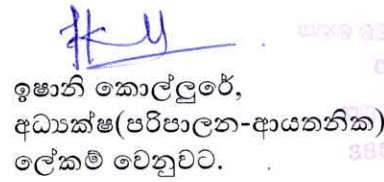 ඉෂානි කොල්ලුරේ,
අධ්‍යක්ෂ(පරිපාලන-ආයතනික)
ලේකම් වෙනුවට.